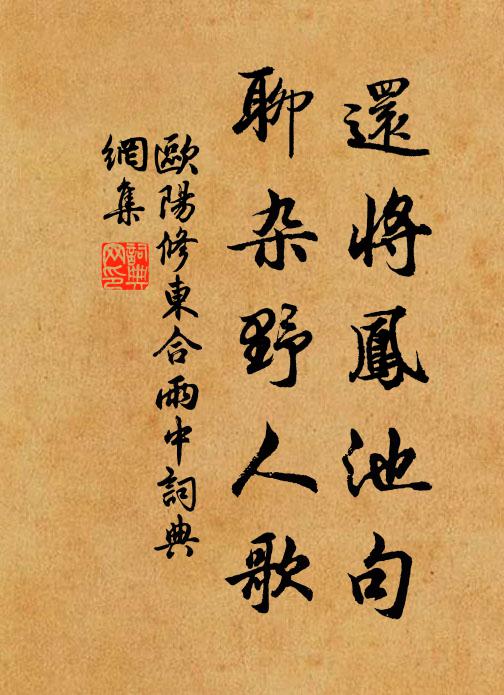 還將鳳池句
聊杂野人歌
歐陽修東合雨中詞典
網集
詞典
网印